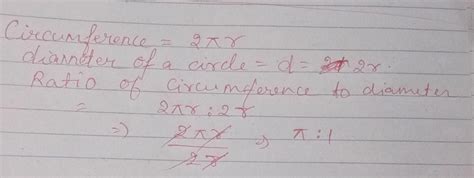 Circumference = 2πr
diameter of a circle = d = 2r.
Ratio of circumference to diameter
= 2πr : 2r
⇒) 2πr / 2r ⇒ π : 1